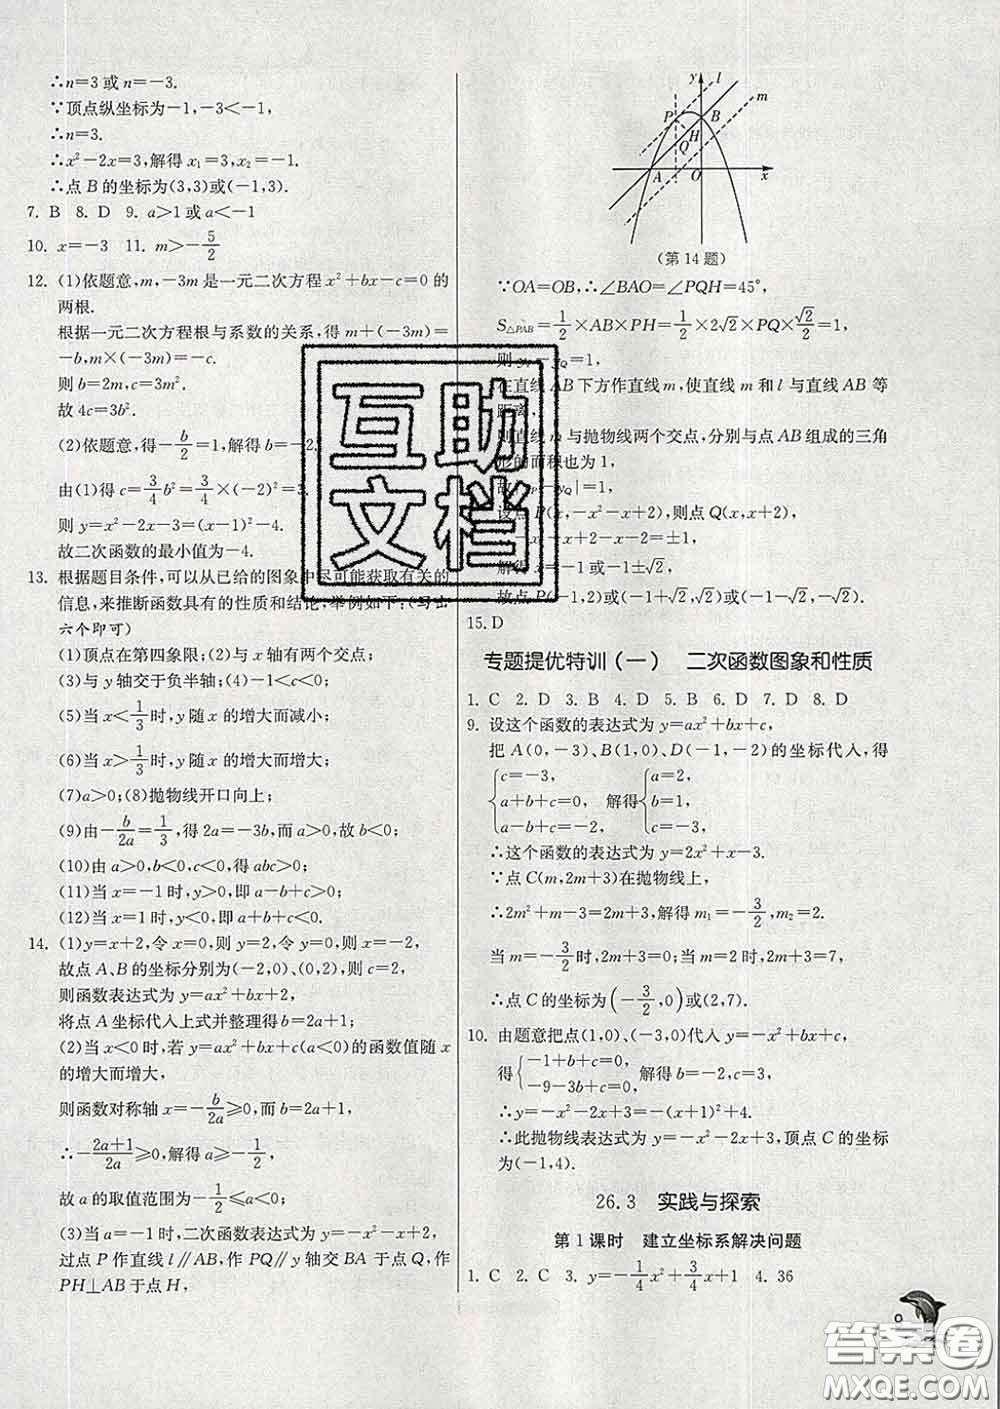 ∴n=3 或 n=−3.
∵顶点纵坐标为−1,−3<−1,
∴n=3.
∴x²−2x=3,解得 x₁=3,x₂=−1.
∴点 B 的坐标为(3,3)或(−1,3).
7. B 8. D 9. a>1 或 a<−1
10. x=−3 11. m>−5/2
12. (1)依题意,m,−3m 是一元二次方程 x²+bx−c=0 的
两根.
根据一元二次方程根与系数的关系,得 m+(−3m)=
−b,m×(−3m)=−c.
则 b=2m,c=3m².
故 4c=3b².
(2)依题意,得−b/2=1,解得 b=−2.
由(1)得 c=3/4b²=3/4×(−2)²=3.
则 y=x²−2x−3=(x−1)²−4.
故二次函数的最小值为−4.
13. 根据题目条件,可以从已给的图象中尽可能获取有关的
信息,来推断函数具有的性质和结论,举例如下:(写出
六个即可)
(1)顶点在第四象限;(2)与 x 轴有两个交点;
(3)与 y 轴交于负半轴;(4)−1<c<0;
(5)当 x<1/3时,y 随 x 的增大而减小;
(6)当 x>1/3时,y 随 x 的增大而增大;
(7)a>0;(8)抛物线开口向上;
(9)由−b/2a=1/3,得 2a=−3b,而 a>0,故 b<0;
(10)由 a>0,b<0,c<0,得 abc>0;
(11)当 x=−1 时,y>0,即 a−b+c>0;
(12)当 x=1 时,y<0,即 a+b+c<0.
14. (1)y=x+2,令 x=0,则 y=2,令 y=0,则 x=−2,
故点 A、B 的坐标分别为(−2,0)、(0,2),则 c=2,
则函数表达式为 y=ax²+bx+2,
将点 A 坐标代入上式并整理得 b=2a+1;
(2)当 x<0 时,若 y=ax²+bx+c(a<0)的函数值随 x
的增大而增大,
则函数对称轴 x=−b/2a≥0,而 b=2a+1,
∴−(2a+1)/2a≥0,解得 a≥−1/2,
故 a 的取值范围为−1/2≤a<0;
(3)当 a=−1 时,二次函数表达式为 y=−x²−x+2,
过点 P 作直线 l∥AB,作 PQ∥y 轴交 BA 于点 Q,作
PH⊥AB 于点 H,
y l
m
P B
H
Q
A O x
(第 14 题)
∵OA=OB,∴∠BAO=∠PQH=45°,
S△PAB=1/2×AB×PH=1/2×2√2×PQ×√2/2=1,
则 yP−yQ=1,
在直线 AB 下方作直线 m,使直线 m 和 l 与直线 AB 等
距离,
则直线 m 与抛物线两个交点,分别与点 AB 组成的三角
形的面积也为 1,
故|yP−yQ|=1,
设点 P(x,−x²−x+2),则点 Q(x,x+2),
−x²−x+2−x−2=±1,
解得 x=−1 或−1±√2,
故点 P(−1,2)或(−1+√2,√2)或(−1−√2,−√2).
15. D
专题提优特训(一) 二次函数图象和性质
1. C 2. D 3. B 4. D 5. D 6. D 7. D 8. D
9. 设这个函数的表达式为 y=ax²+bx+c,
把 A(0,−3)、B(1,0)、D(−1,−2)的坐标代入,得
{c=−3, a+b+c=0, a−b+c=−2, 解得{a=2, b=1, c=−3.
∴这个函数的表达式为 y=2x²+x−3.
∵点 C(m,2m+3)在抛物线上,
∴2m²+m−3=2m+3,解得 m₁=−3/2,m₂=2.
当 m=−3/2时,2m+3=0;当 m=2 时,2m+3=7,
∴点 C 的坐标为(−3/2,0)或(2,7).
10. 由题意把点(1,0)、(−3,0)代入 y=−x²+bx+c,
得{−1+b+c=0, −9−3b+c=0, 解得 b=−2,c=3.
∴y=−x²−2x+3=−(x+1)²+4.
∴此抛物线表达式为 y=−x²−2x+3,顶点 C 的坐标
为(−1,4).
26.3 实践与探索
第 1 课时 建立坐标系解决问题
1. C 2. C 3. y=−1/4x²+3/4x+1 4. 36
互助
文档
答案圈
MXQE.COM